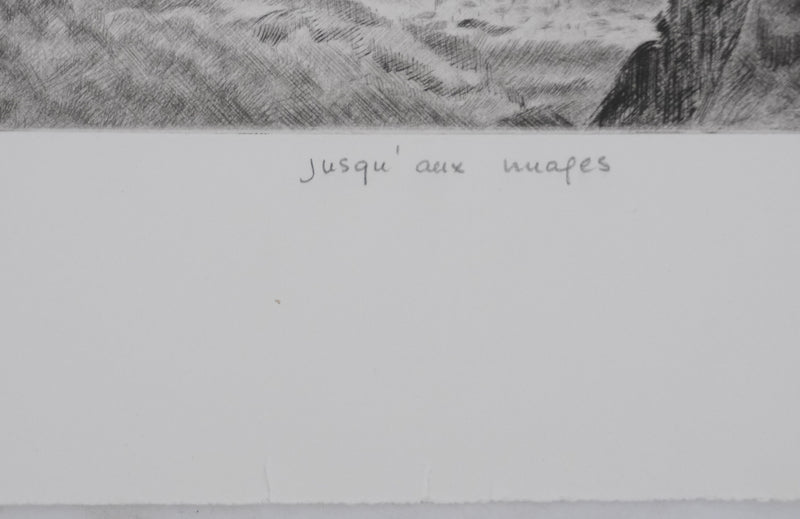 jusqu'aux nuages